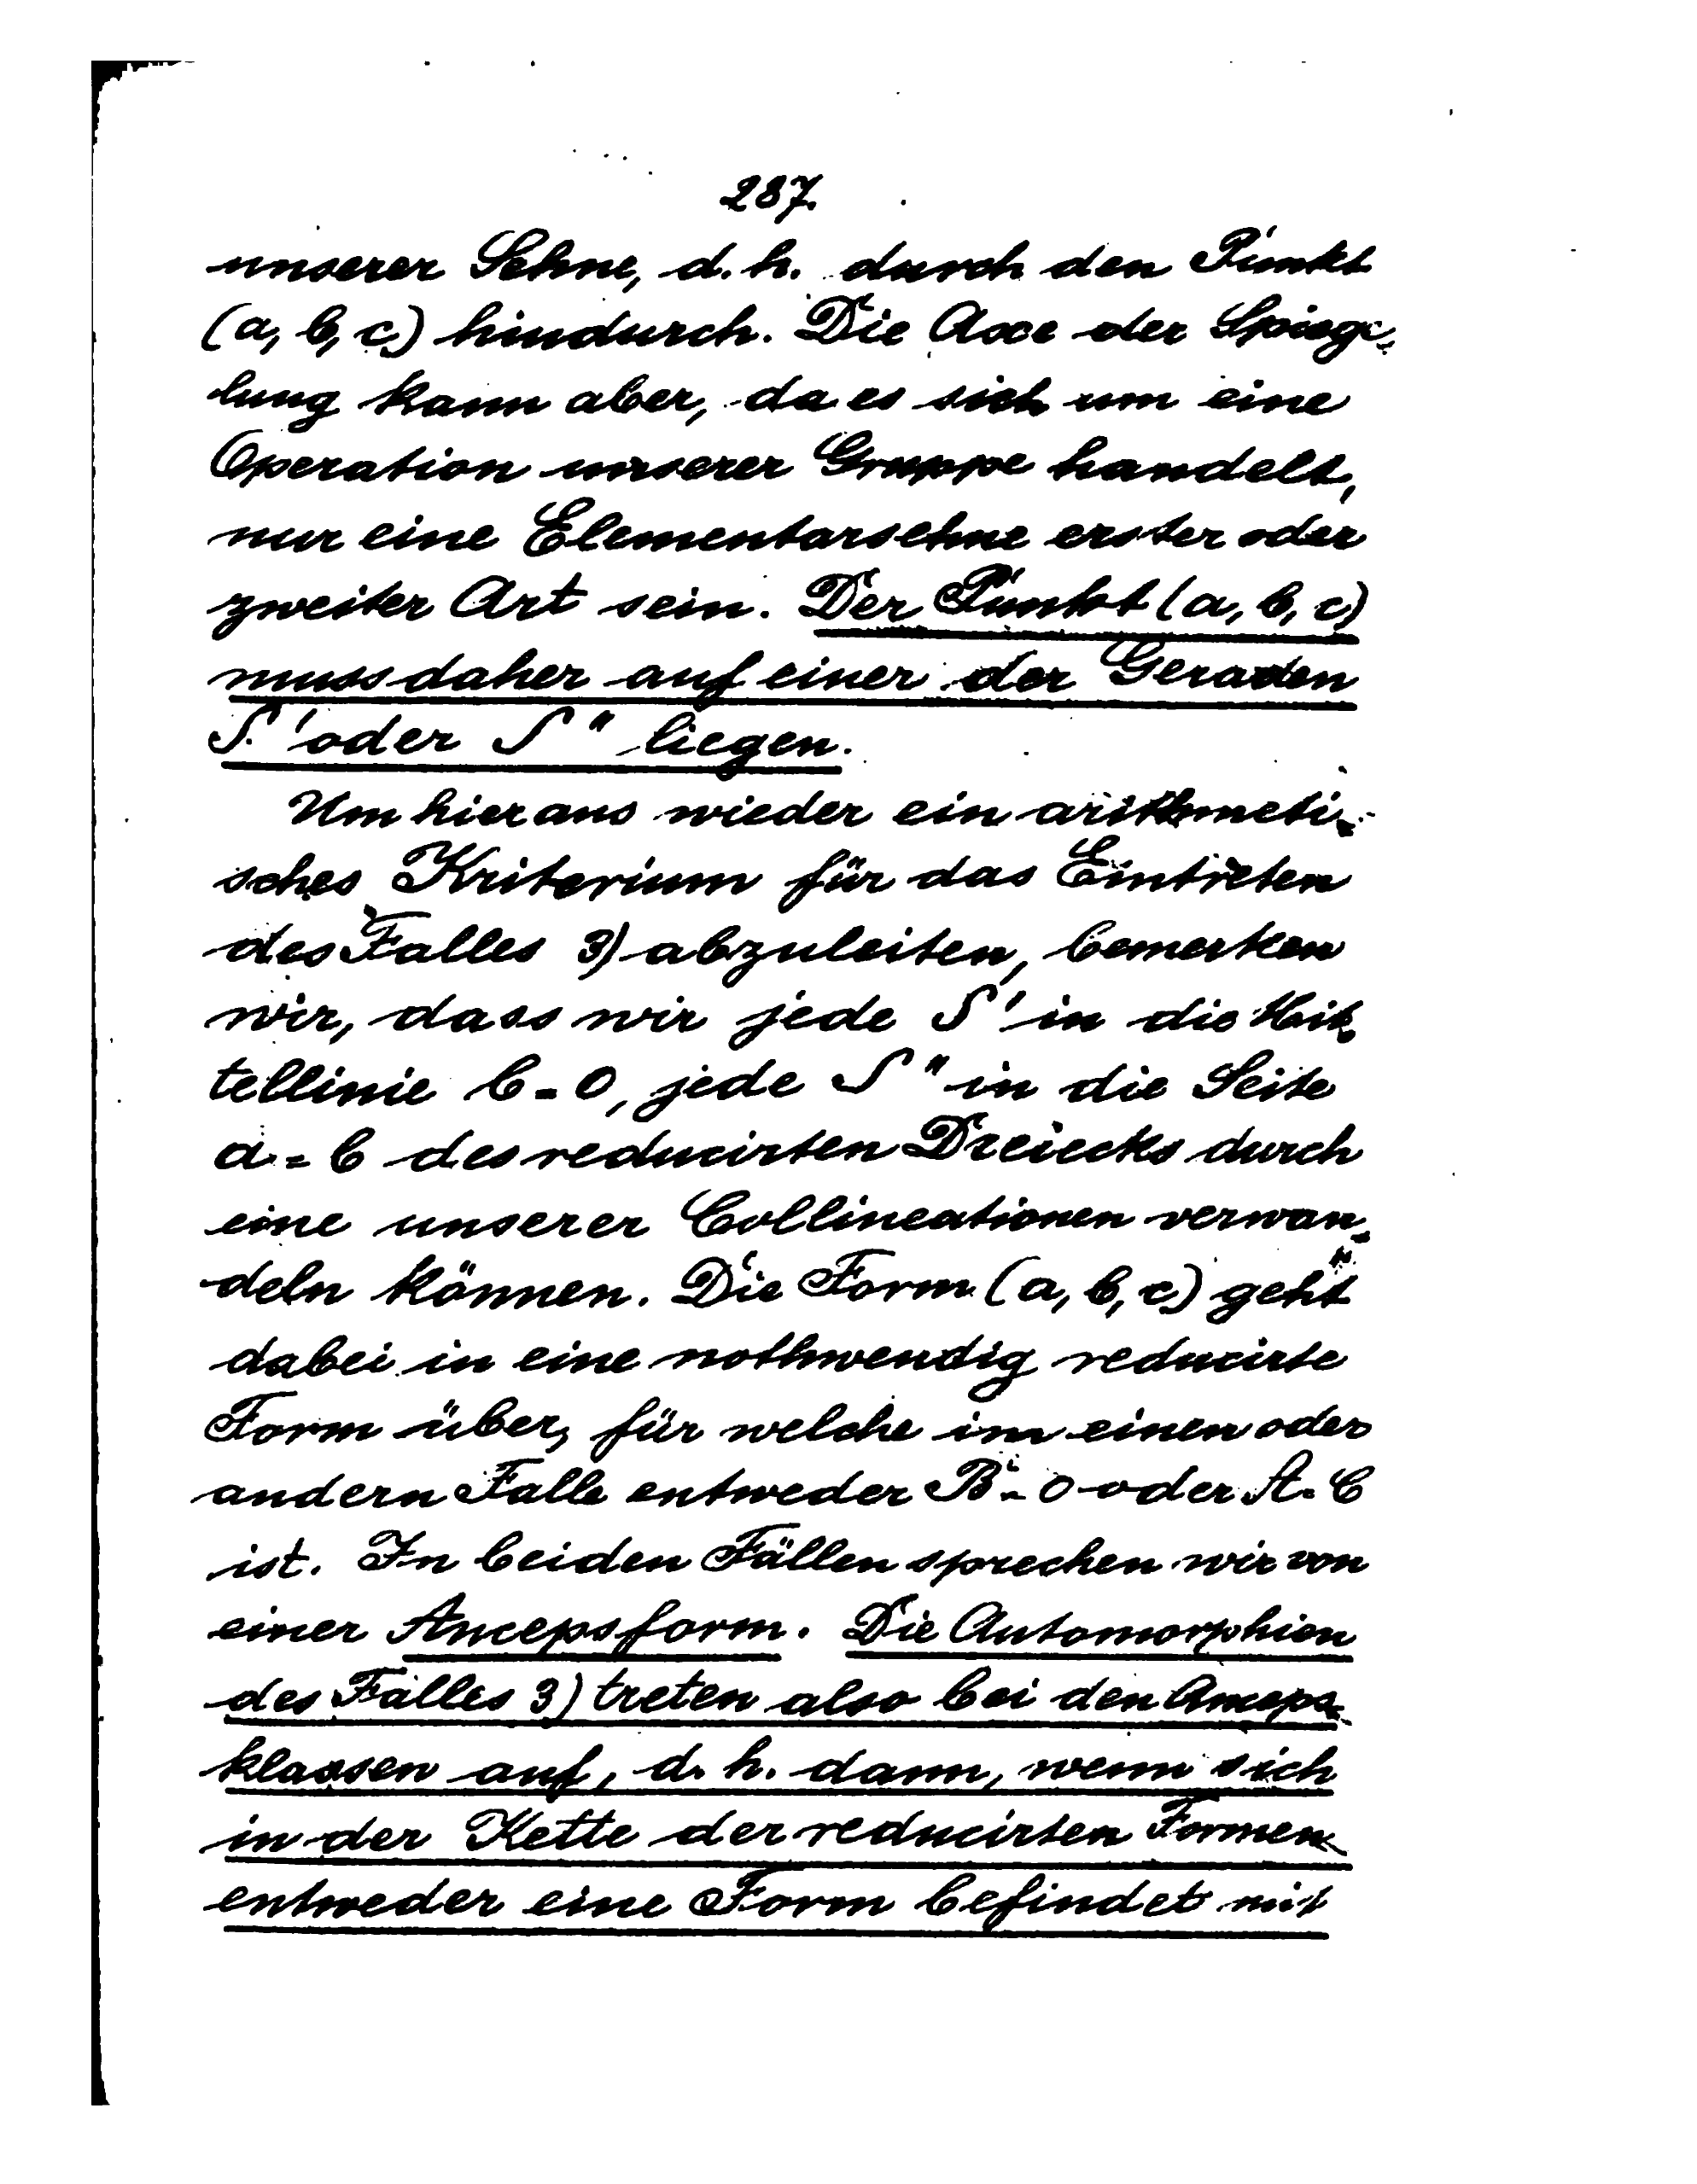 287.
unserer Sehne, d. h. durch den Punkt
(a, b, c) hindurch. Die Axe der Spiege-
lung kann aber, da es sich um eine
Operation unserer Gruppe handelt,
nur eine Elementarsehne erster oder
zweiter Art sein. Der Punkt (a, b, c)
muss daher auf einer der Geraden
S' oder S" liegen.
Um hieraus wieder ein arithmeti-
sches Kriterium für das Eintreten
des Falles 3) abzuleiten, bemerken
wir, dass wir jede S' in die Mit-
tellinie b=0, jede S" in die Seite
a=b des reducirten Dreiecks durch
eine unserer Collineationen verwan-
deln können. Die Form (a, b, c) geht
dabei in eine nothwendig reducirte
Form über, für welche im einen oder
andern Falle entweder B=0 oder A=C
ist. In beiden Fällen sprechen wir von
einer Ancepsform. Die Automorphien
des Falles 3) treten also bei den Anceps-
klassen auf, d. h. dann, wenn sich
in der Kette der reducirten Formen
entweder eine Form befindet mit